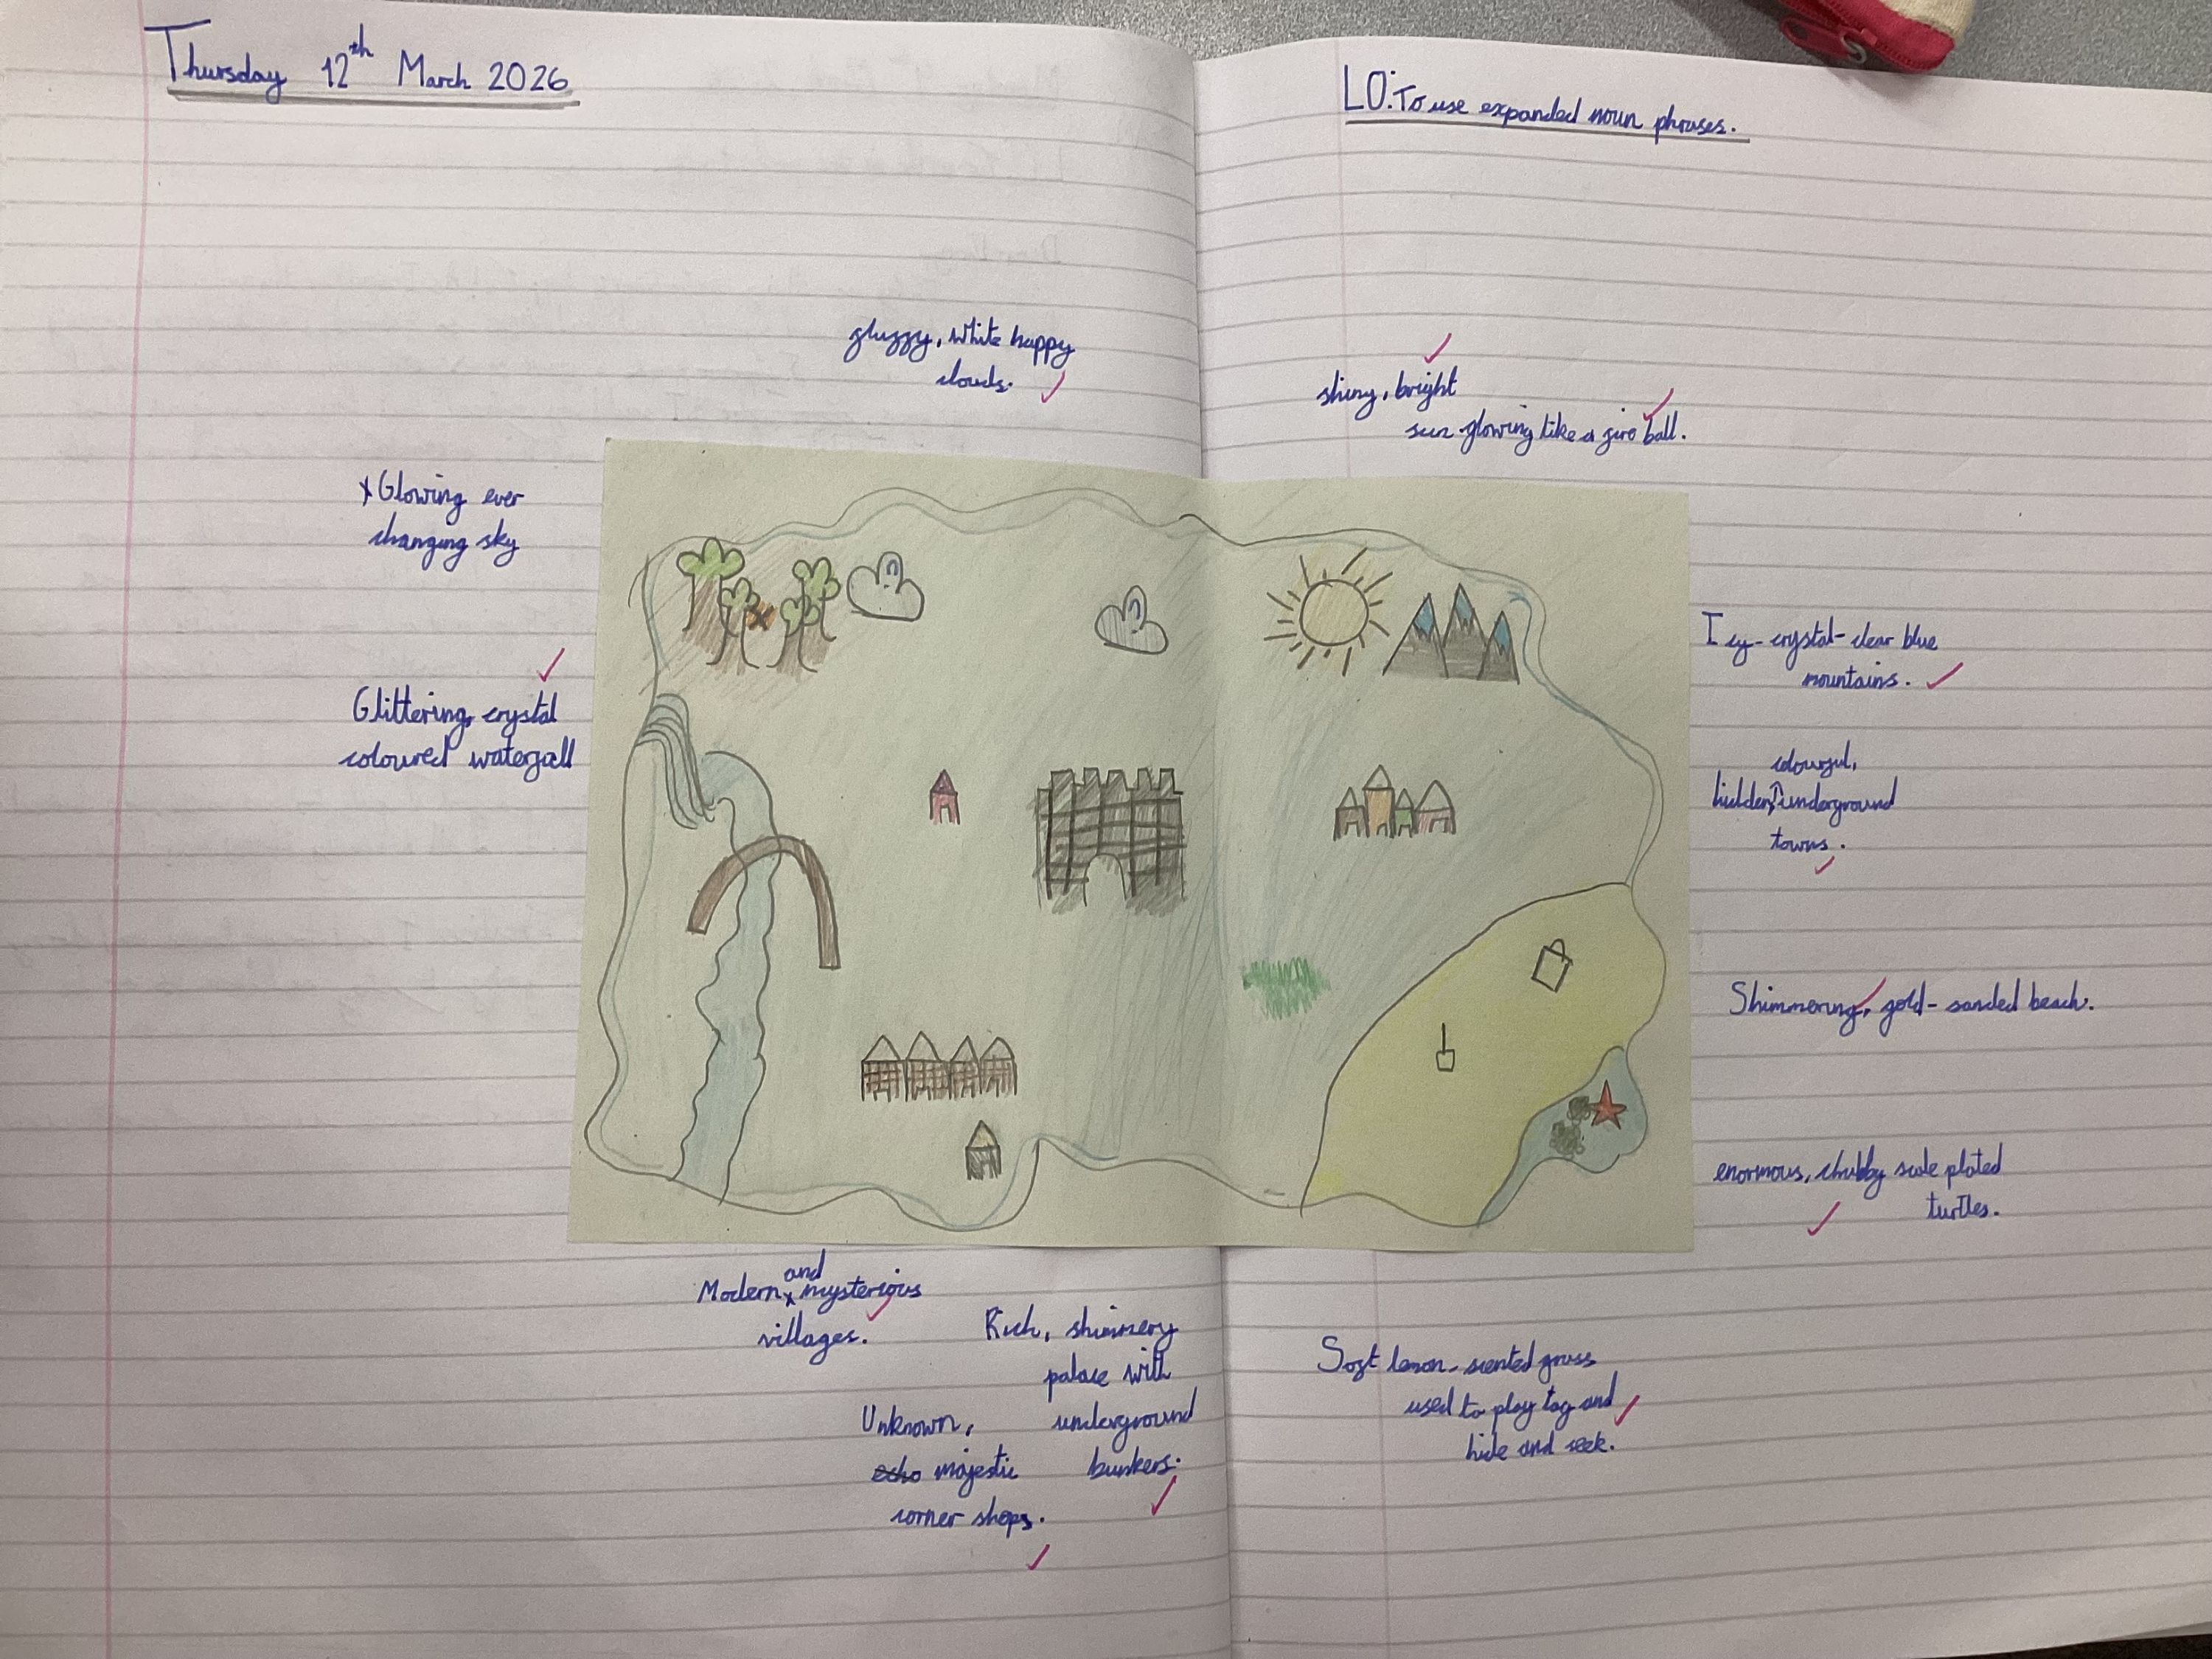 Thursday 12th March 2026
LO: To use expanded noun phrases.
fluffy, white happy
clouds.
shiny, bright
sun glowing like a fire ball.
Glowing ever
changing sky
Glittering, crystal
coloured waterfall
Icy-crystal-clear blue
mountains.
colourful,
hidden, underground
towns.
Shimmering, gold-sanded beach.
enormous, chubby scale plated
turtles.
and
Modern mysterious
villages.
Rich, shimmery
palace with
underground
bunkers.
Unknown,
echo majestic
corner shops.
Soft lemon-scented grass
used to play tag and
hide and seek.